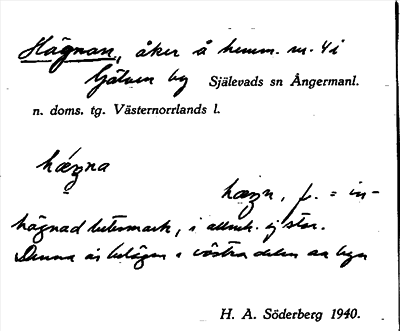 Hägnan, åker å hemm. nr. 4 i
by Själevads sn Ångermanl.
n. doms. tg. Västernorrlands l.
hægna
hægn, f. = in-
hägnad betesmark, i allmh. ej stor.
Denna är belägen i västra delen av byn
H. A. Söderberg 1940.